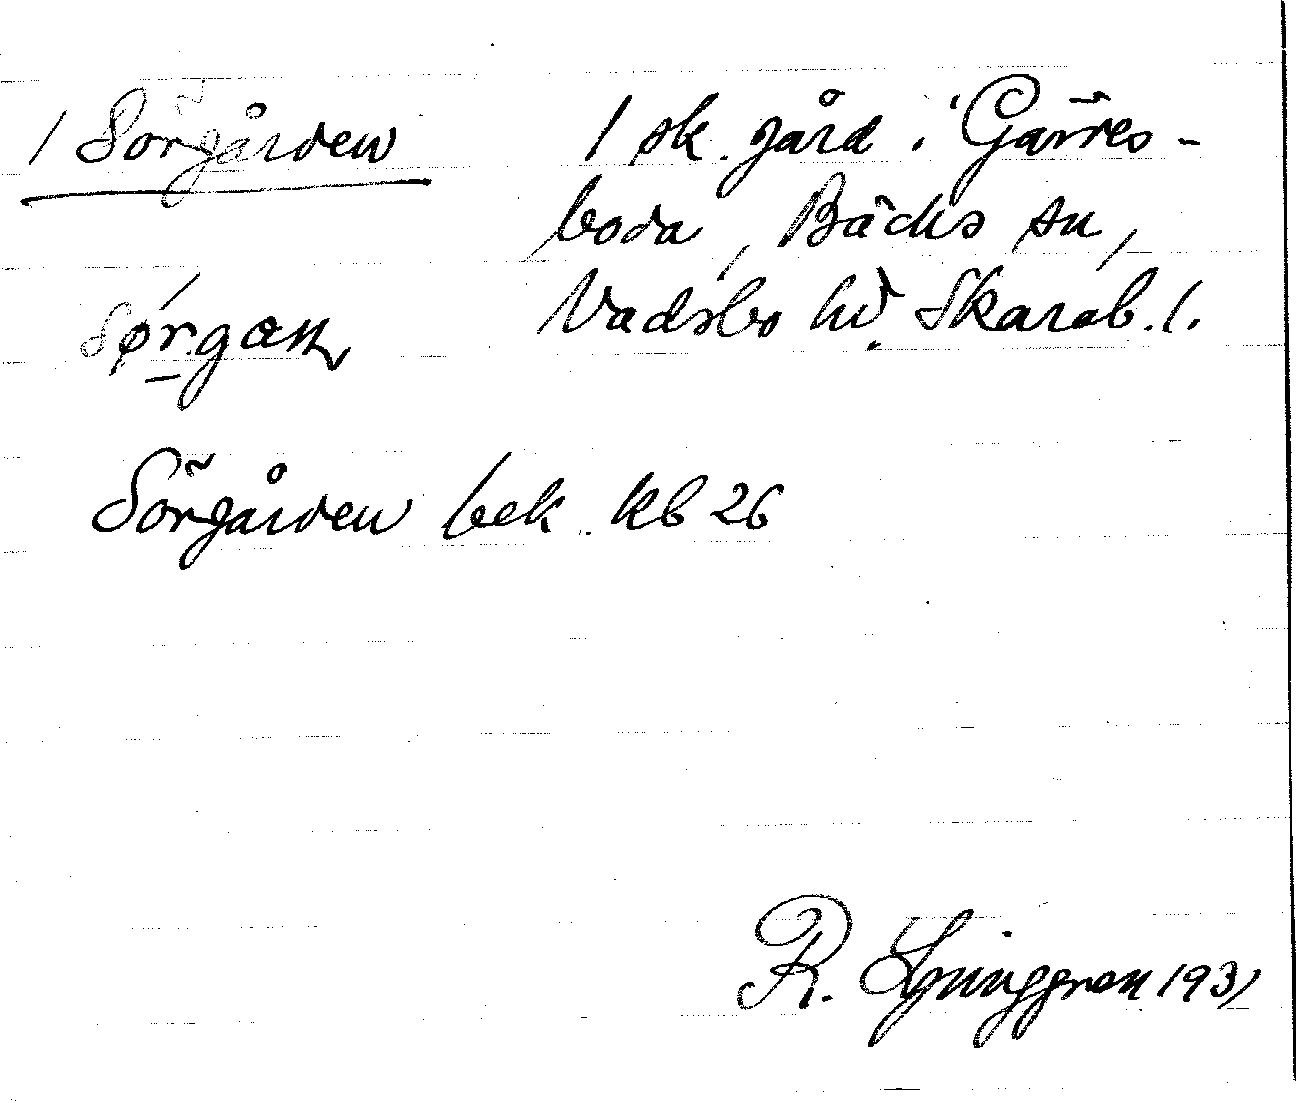 / Sörgården
1 sk. gård i Gärdes-
boda, Bäcks sn,
Vadsbo hd. Skarab. l.
Sørgæn
Sörgården bek. kb 26
R. Ljunggren 1931